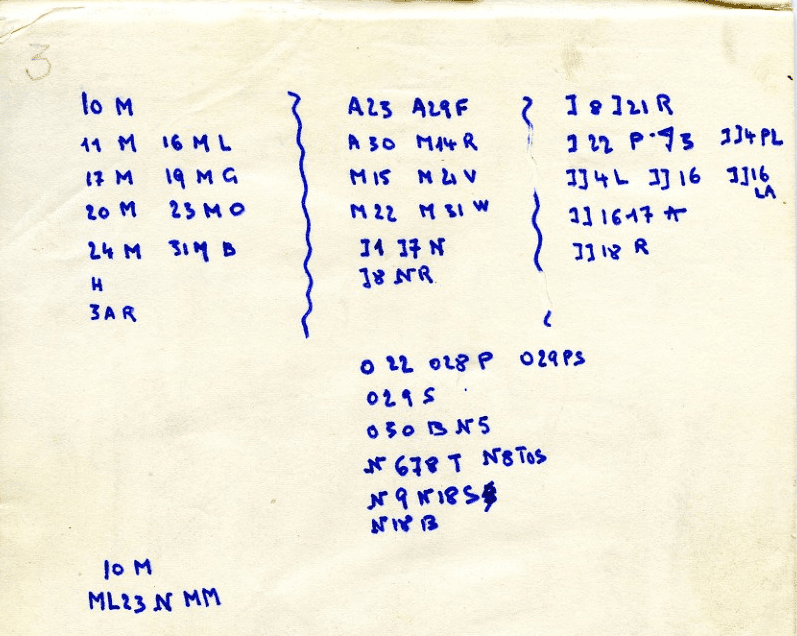 3
10 M
11 M 16 M L
17 M 19 M G
20 M 23 M O
24 M 31 M B
H
3 A R
A23 A29F
A 30 M14 R
M15 M 21 V
M 22 M 31 W
J1 J7 N
J8 N R
J 8 J21 R
J 22 P JJ4 PL
JJ4 L JJ 16 JJ16
LA
JJ 16 17 A
JJ 18 R
O 22 O28 P O29PS
O29 S
O30 B N5
N 678 T N8 TOS
N 9 N18 S
N18 B
10 M
ML23 N MM